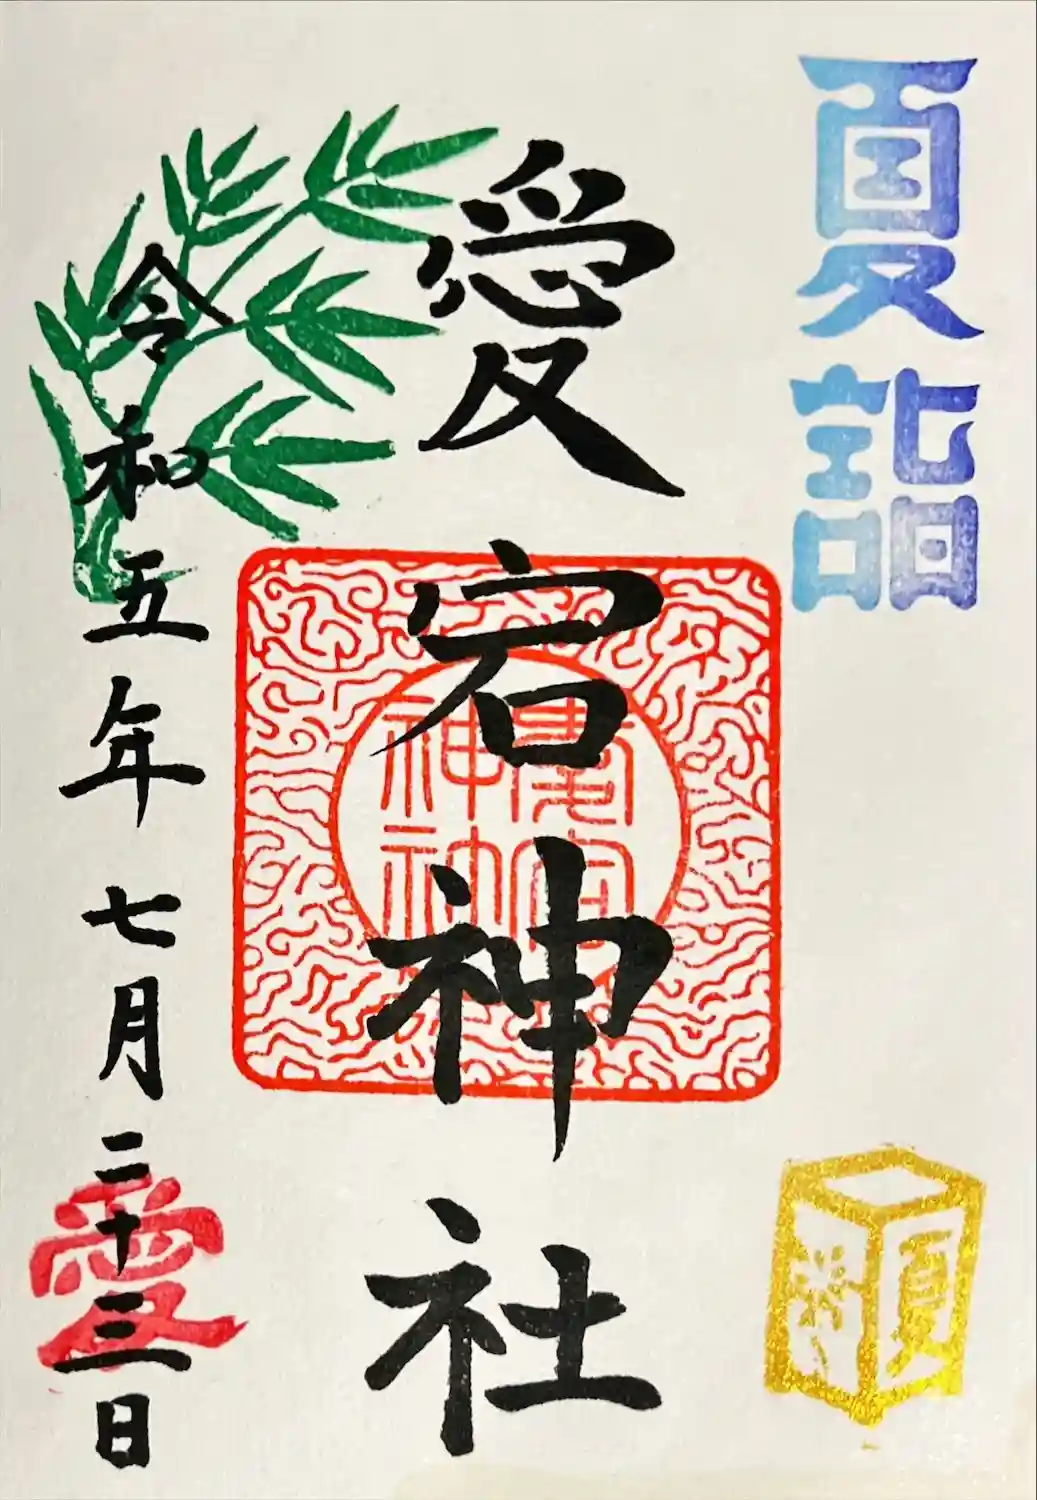 夏詣
愛宕神社
愛宕
神社
令和五年七月二十三日
愛
夏祭り